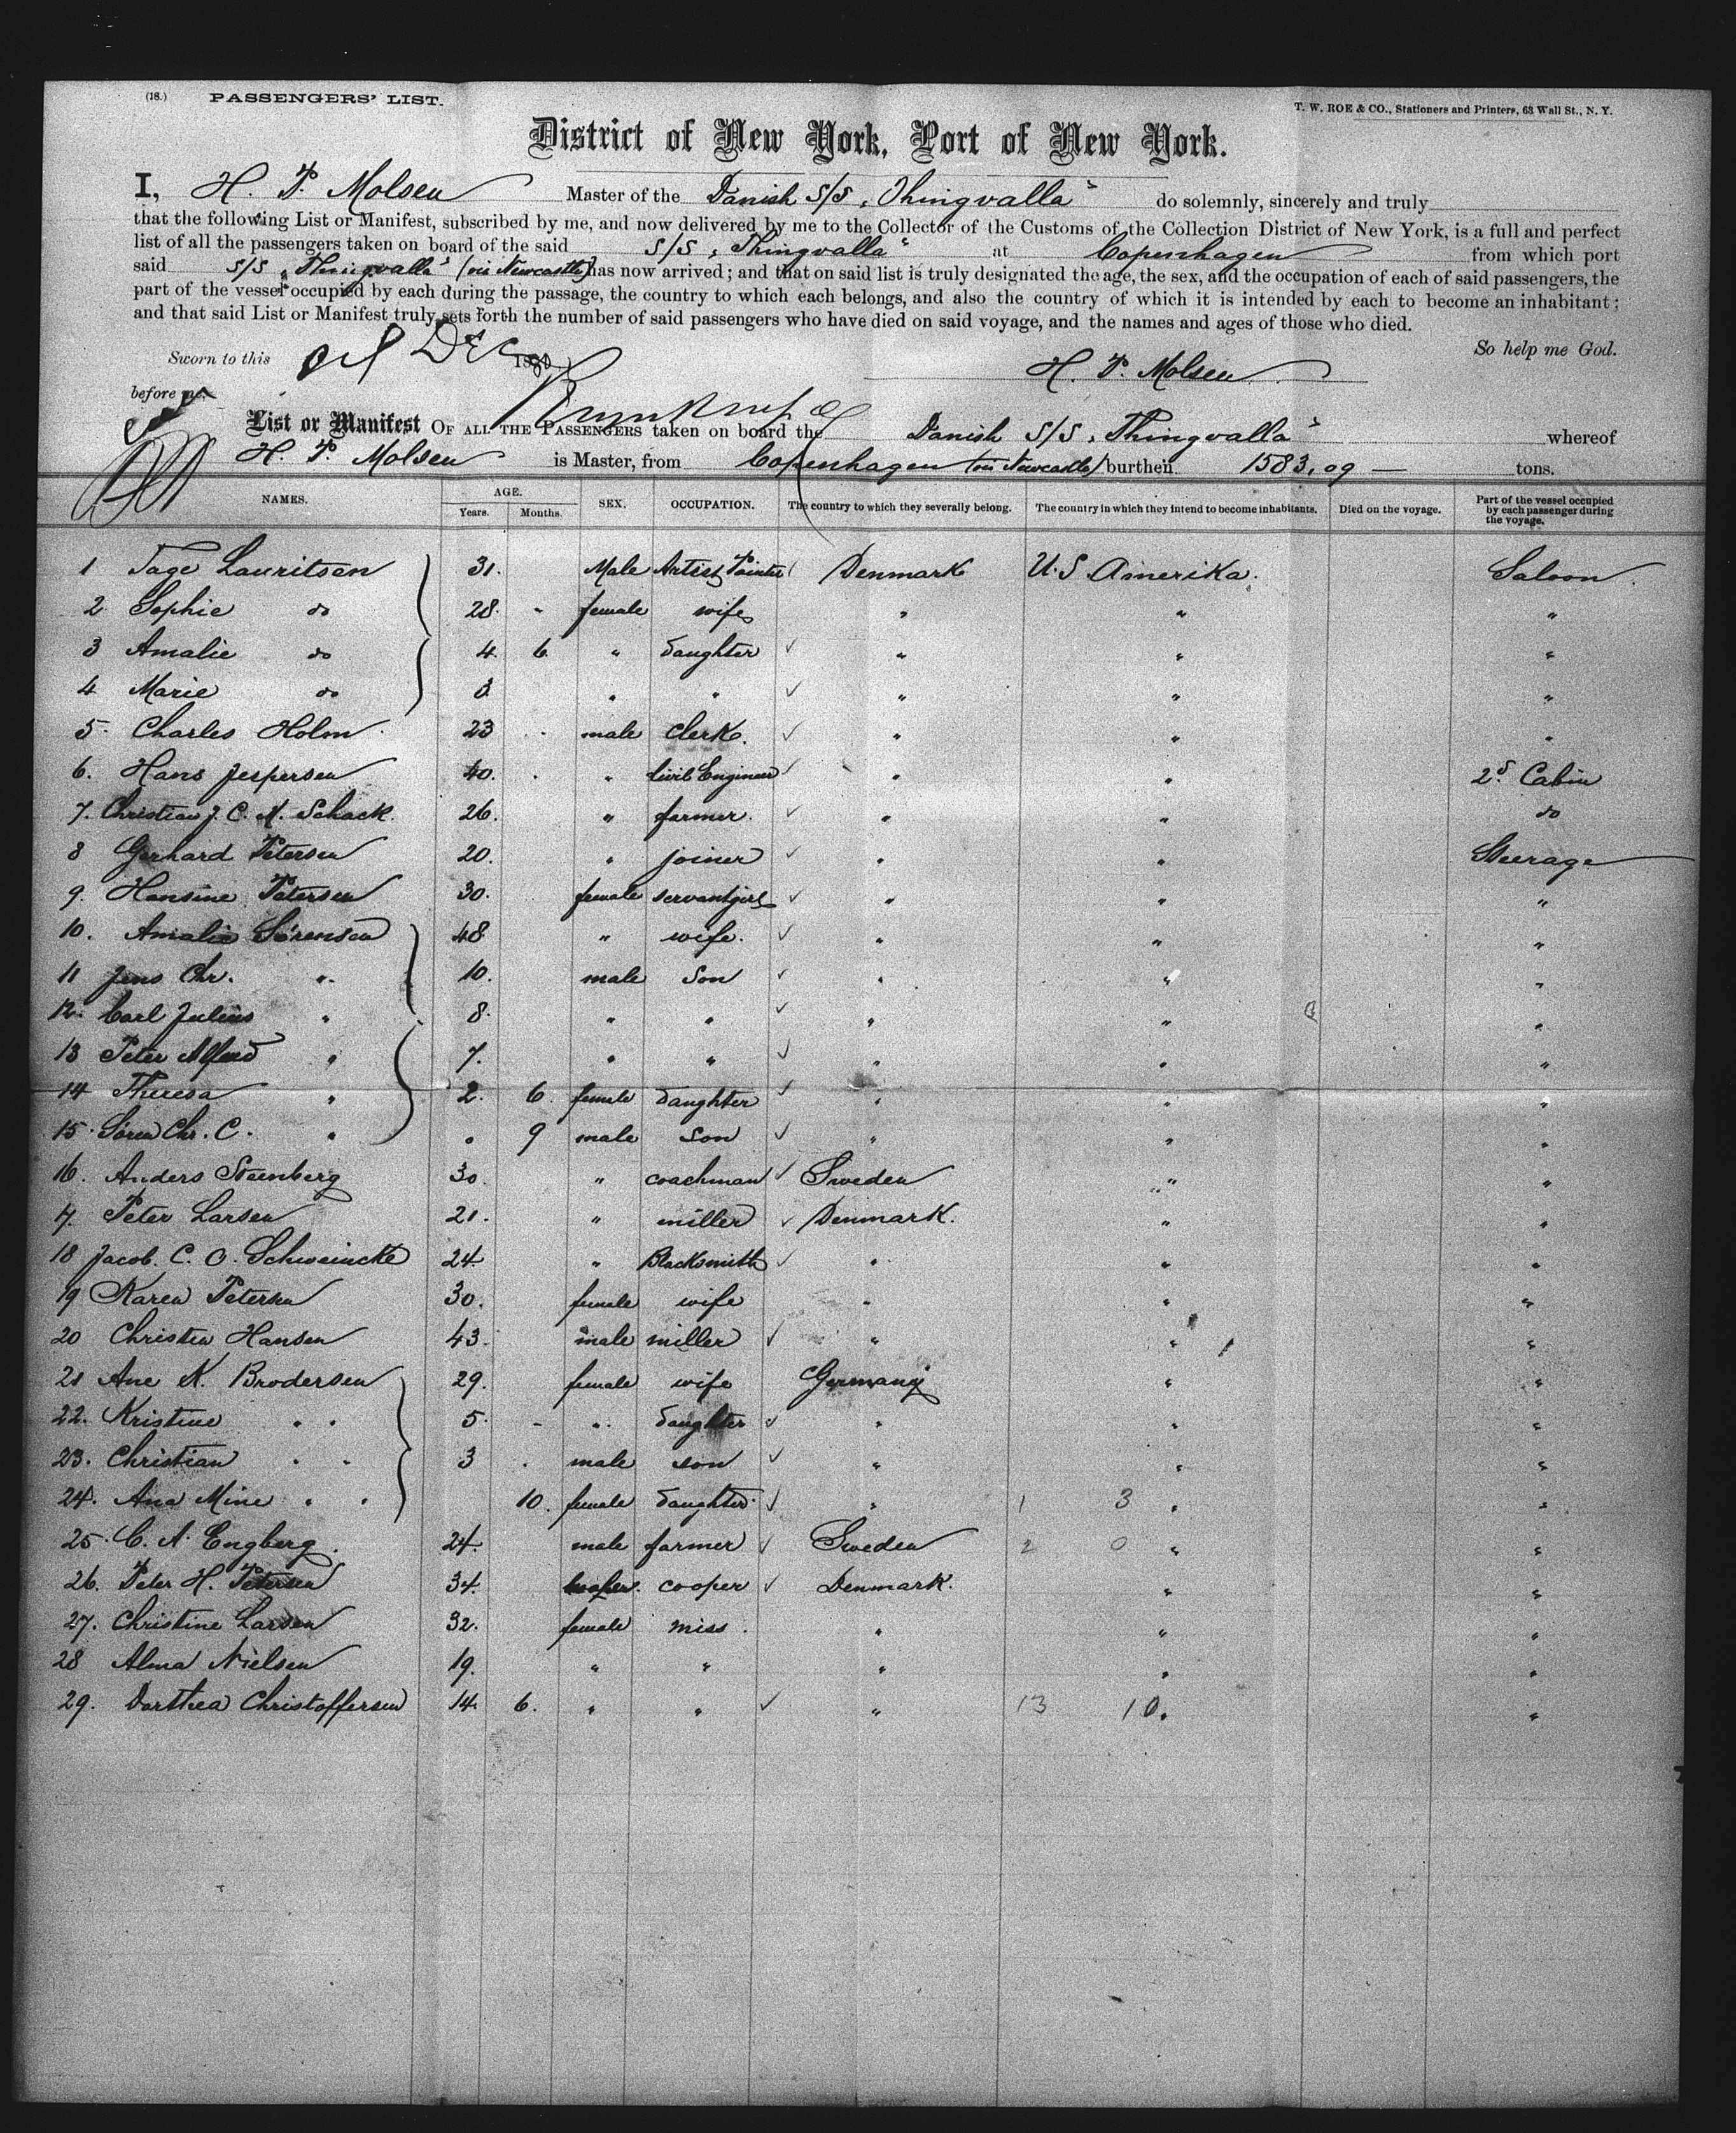 (18.) PASSENGERS' LIST.
T. W. ROE & CO., Stationers and Printers, 63 Wall St., N. Y.
District of New York, Port of New York.
I, H. P. Molsen Master of the Danish S/S "Thingvalla" do solemnly, sincerely and truly
that the following List or Manifest, subscribed by me, and now delivered by me to the Collector of the Customs of the Collection District of New York, is a full and perfect
list of all the passengers taken on board of the said S/S "Thingvalla" at Copenhagen from which port
said S/S "Thingvalla" (via Newcastle) has now arrived; and that on said list is truly designated the age, the sex, and the occupation of each of said passengers, the
part of the vessel occupied by each during the passage, the country to which each belongs, and also the country of which it is intended by each to become an inhabitant;
and that said List or Manifest truly sets forth the number of said passengers who have died on said voyage, and the names and ages of those who died.
Sworn to this Dec 188 So help me God.
H. P. Molsen
before me.
List or Manifest OF ALL THE PASSENGERS taken on board the Danish S/S "Thingvalla" whereof
H. P. Molsen is Master, from Copenhagen (via Newcastle) burthen 1583,09 — tons.
NAMES. AGE. Years. Months. SEX. OCCUPATION. The country to which they severally belong. The country in which they intend to become inhabitants. Died on the voyage. Part of the vessel occupied by each passenger during the voyage.
1 Tage Lauritsen 31. Male Artist Painter Denmark U.S. Amerika. Saloon.
2 Sophie do 28. - female wife " " "
3 Amalie do 4. 6 " daughter ✓ " " "
4 Marie do 3 " " ✓ " " "
5. Charles Holm 23 - male clerk. ✓ " " "
6. Hans Jespersen 40. " Civil Engineer ✓ " " 2d Cabin
7. Christian J. C. A. Schack. 26. " farmer. ✓ " " do
8 Gerhard Petersen 20. " joiner ✓ " " Steerage
9. Hansine Petersen 30. female servantgirl ✓ " " "
10. Amalie Sörensen 48 " wife. ✓ " " "
11 Jens Chr. " 10. male son ✓ " " "
12. Carl Julius " 8. " " ✓ " " "
13 Peter Alfred " 7. " " ✓ " " "
14 Theresa " 2. 6. female daughter ✓ " " "
15. Sören Chr. C. " " 9 male son ✓ " " "
16. Anders Steenberg 30. " coachman ✓ Sweden " "
17. Peter Larsen 21. " miller ✓ Denmark. " "
18 Jacob. C. O. Schweincke 24. " Blacksmith ✓ " " "
19 Karen Petersen 30. female wife " " "
20 Christen Hansen 43. male miller ✓ " " "
21 Ane K. Brodersen 29. female wife Germany " "
22. Kristine " " 5. - " daughter ✓ " " "
23. Christian " " 3 male son ✓ " " "
24. Ana Mine " " 10. female daughter ✓ " 1 3 " "
25. C. A. Engberg. 24. male farmer ✓ Sweden 2 0 " "
26. Peter H. Petersen 34. cooper. cooper ✓ Denmark. " "
27. Christine Larsen 32. female miss. " " "
28 Alma Nielsen 19. " " " " "
29. Dorthea Christoffersen 14. 6. " " ✓ " 13 10. "